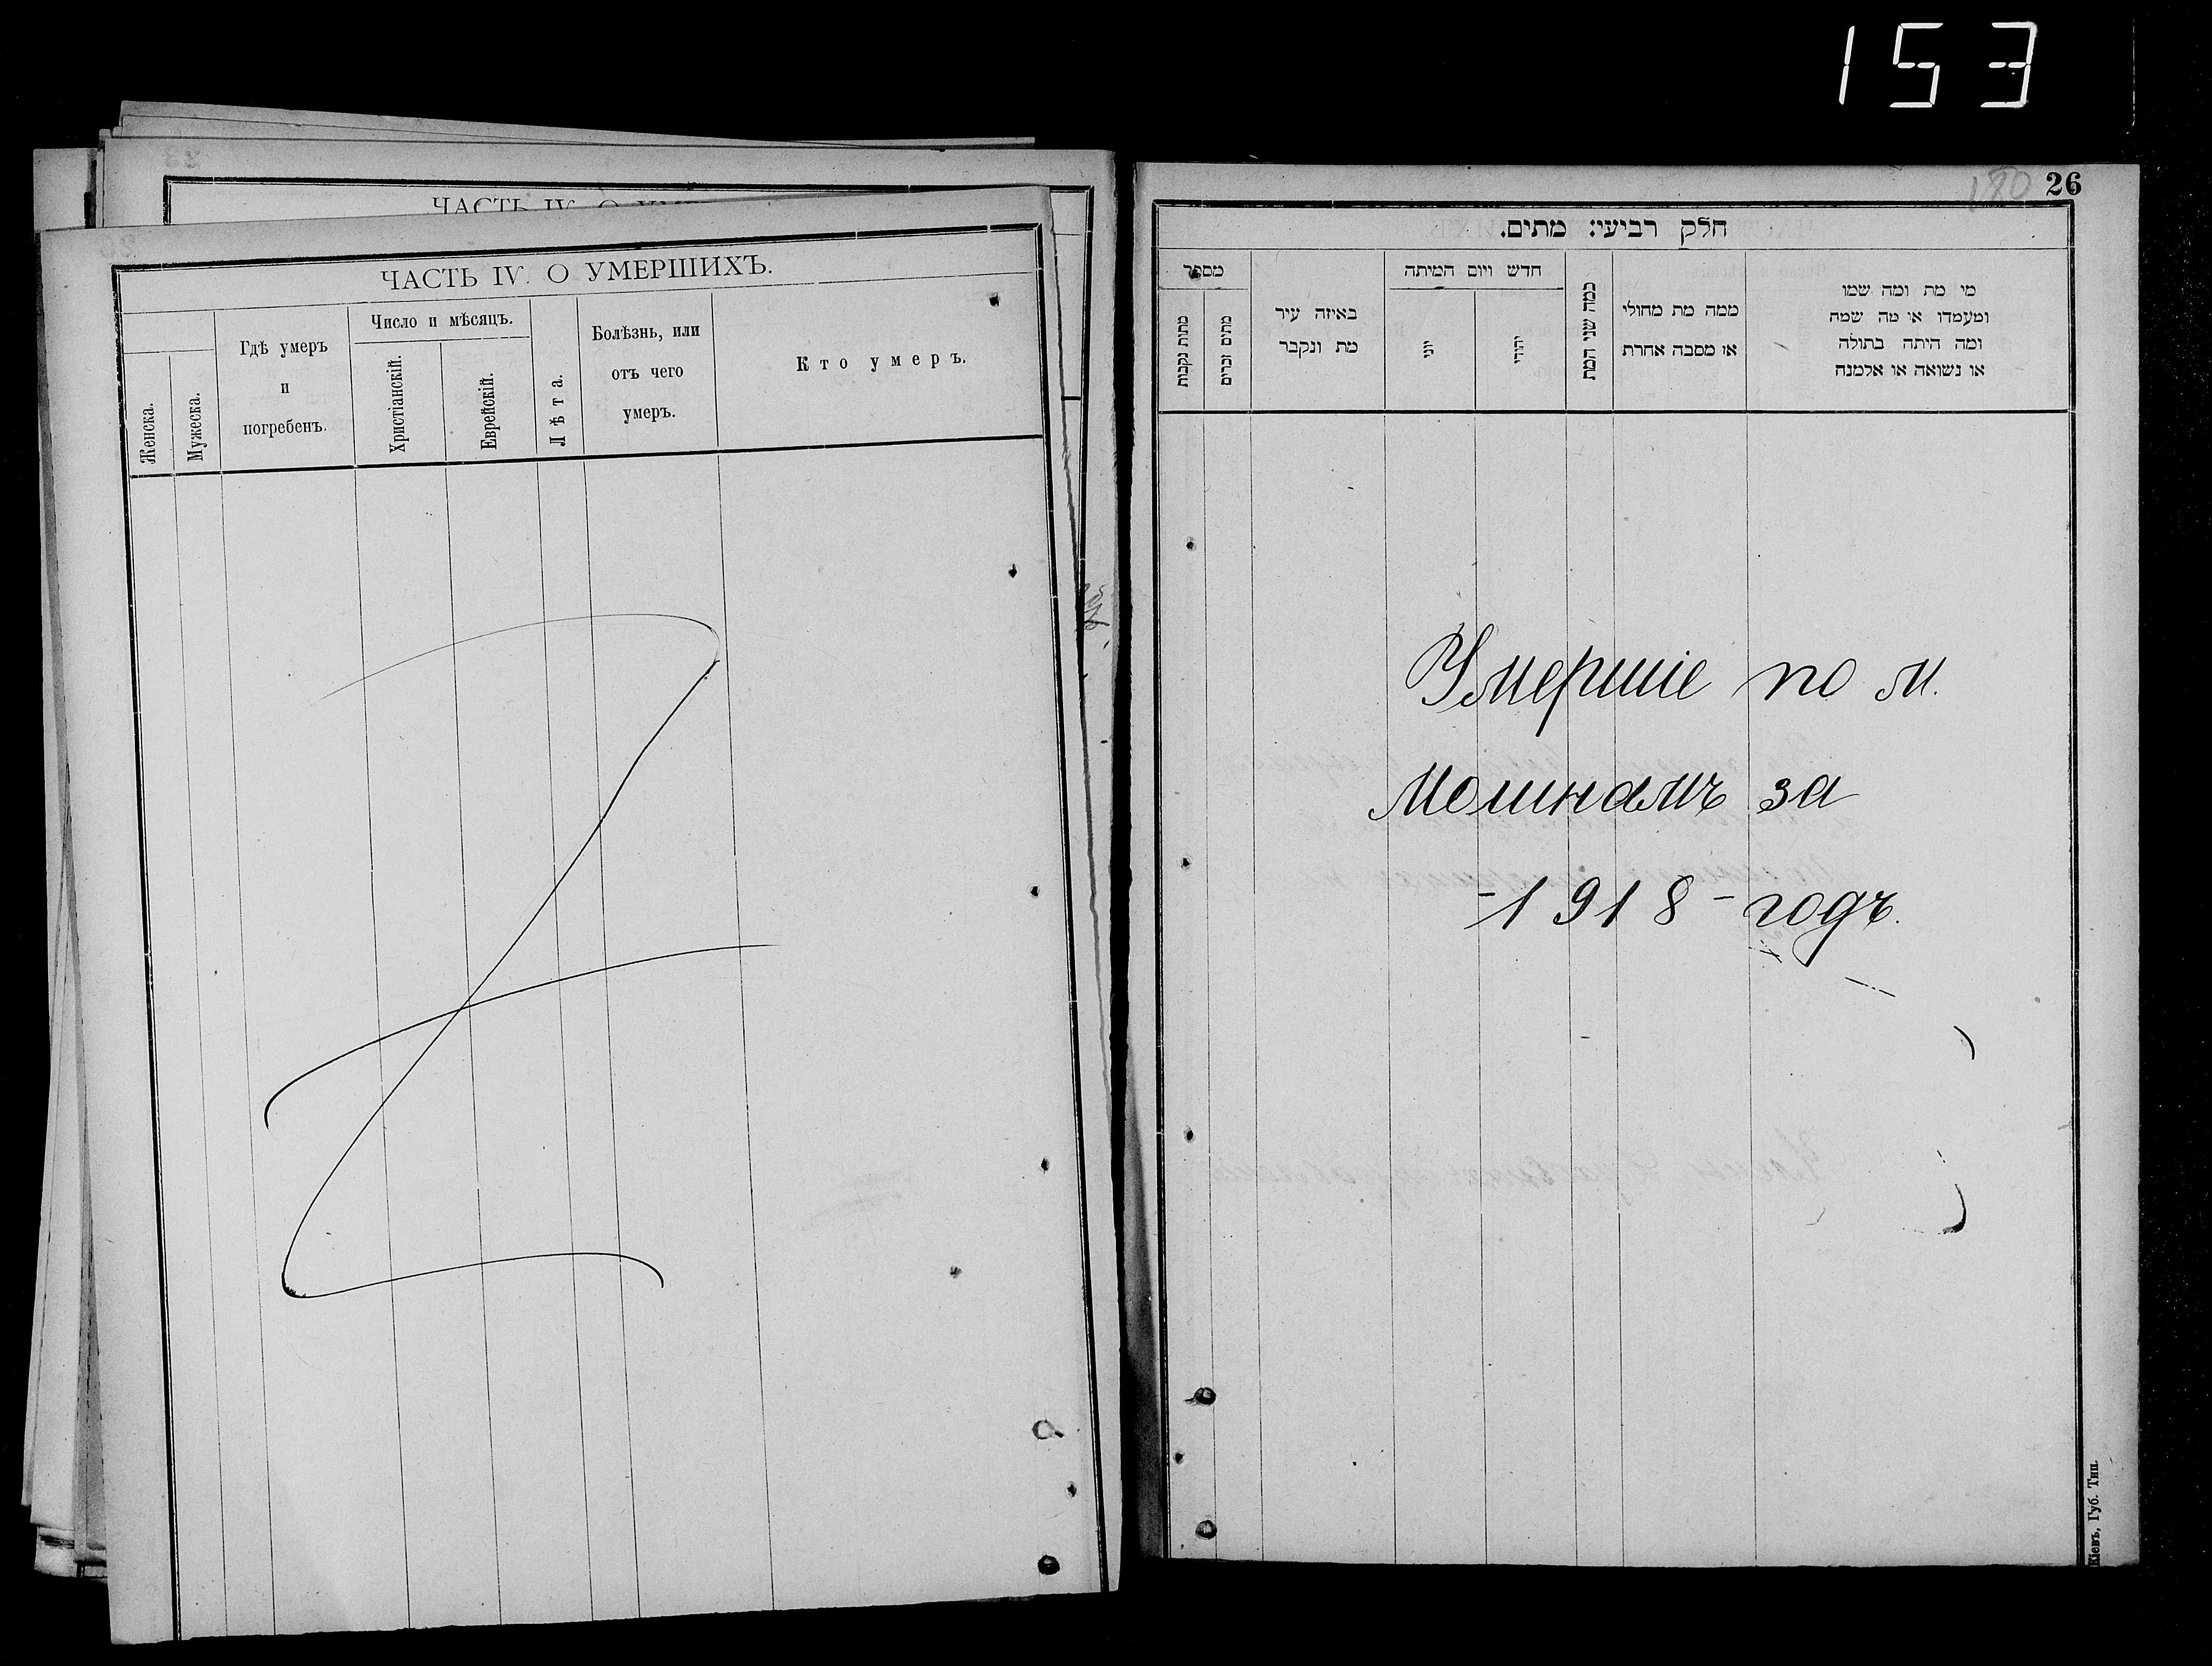 153
ЧАСТЬ IV. О УМЕРШИХЪ.
Женска.
Мужеска.
Гдѣ умеръ
и
погребенъ.
Число и мѣсяцъ.
Христіанскій.
Еврейскій.
Лѣта.
Болѣзнь, или
отъ чего
умеръ.
Кто умеръ.
180 26
חלק רביעי: מתים.
מספר
מתות נקבות
מתים זכרים
באיזה עיר
מת ונקבר
חדש ויום המיתה
יוני
יהודי
כמה שני המת
ממה מת מחולי
או מסבה אחרת
מי מת ומה שמו
ומעמדו או מה שמה
ומה היתה בתולה
או נשואה או אלמנה
Умершіе по м.
Мошнамъ за
-1918- годъ.
Кіевъ, Губ. Тип.